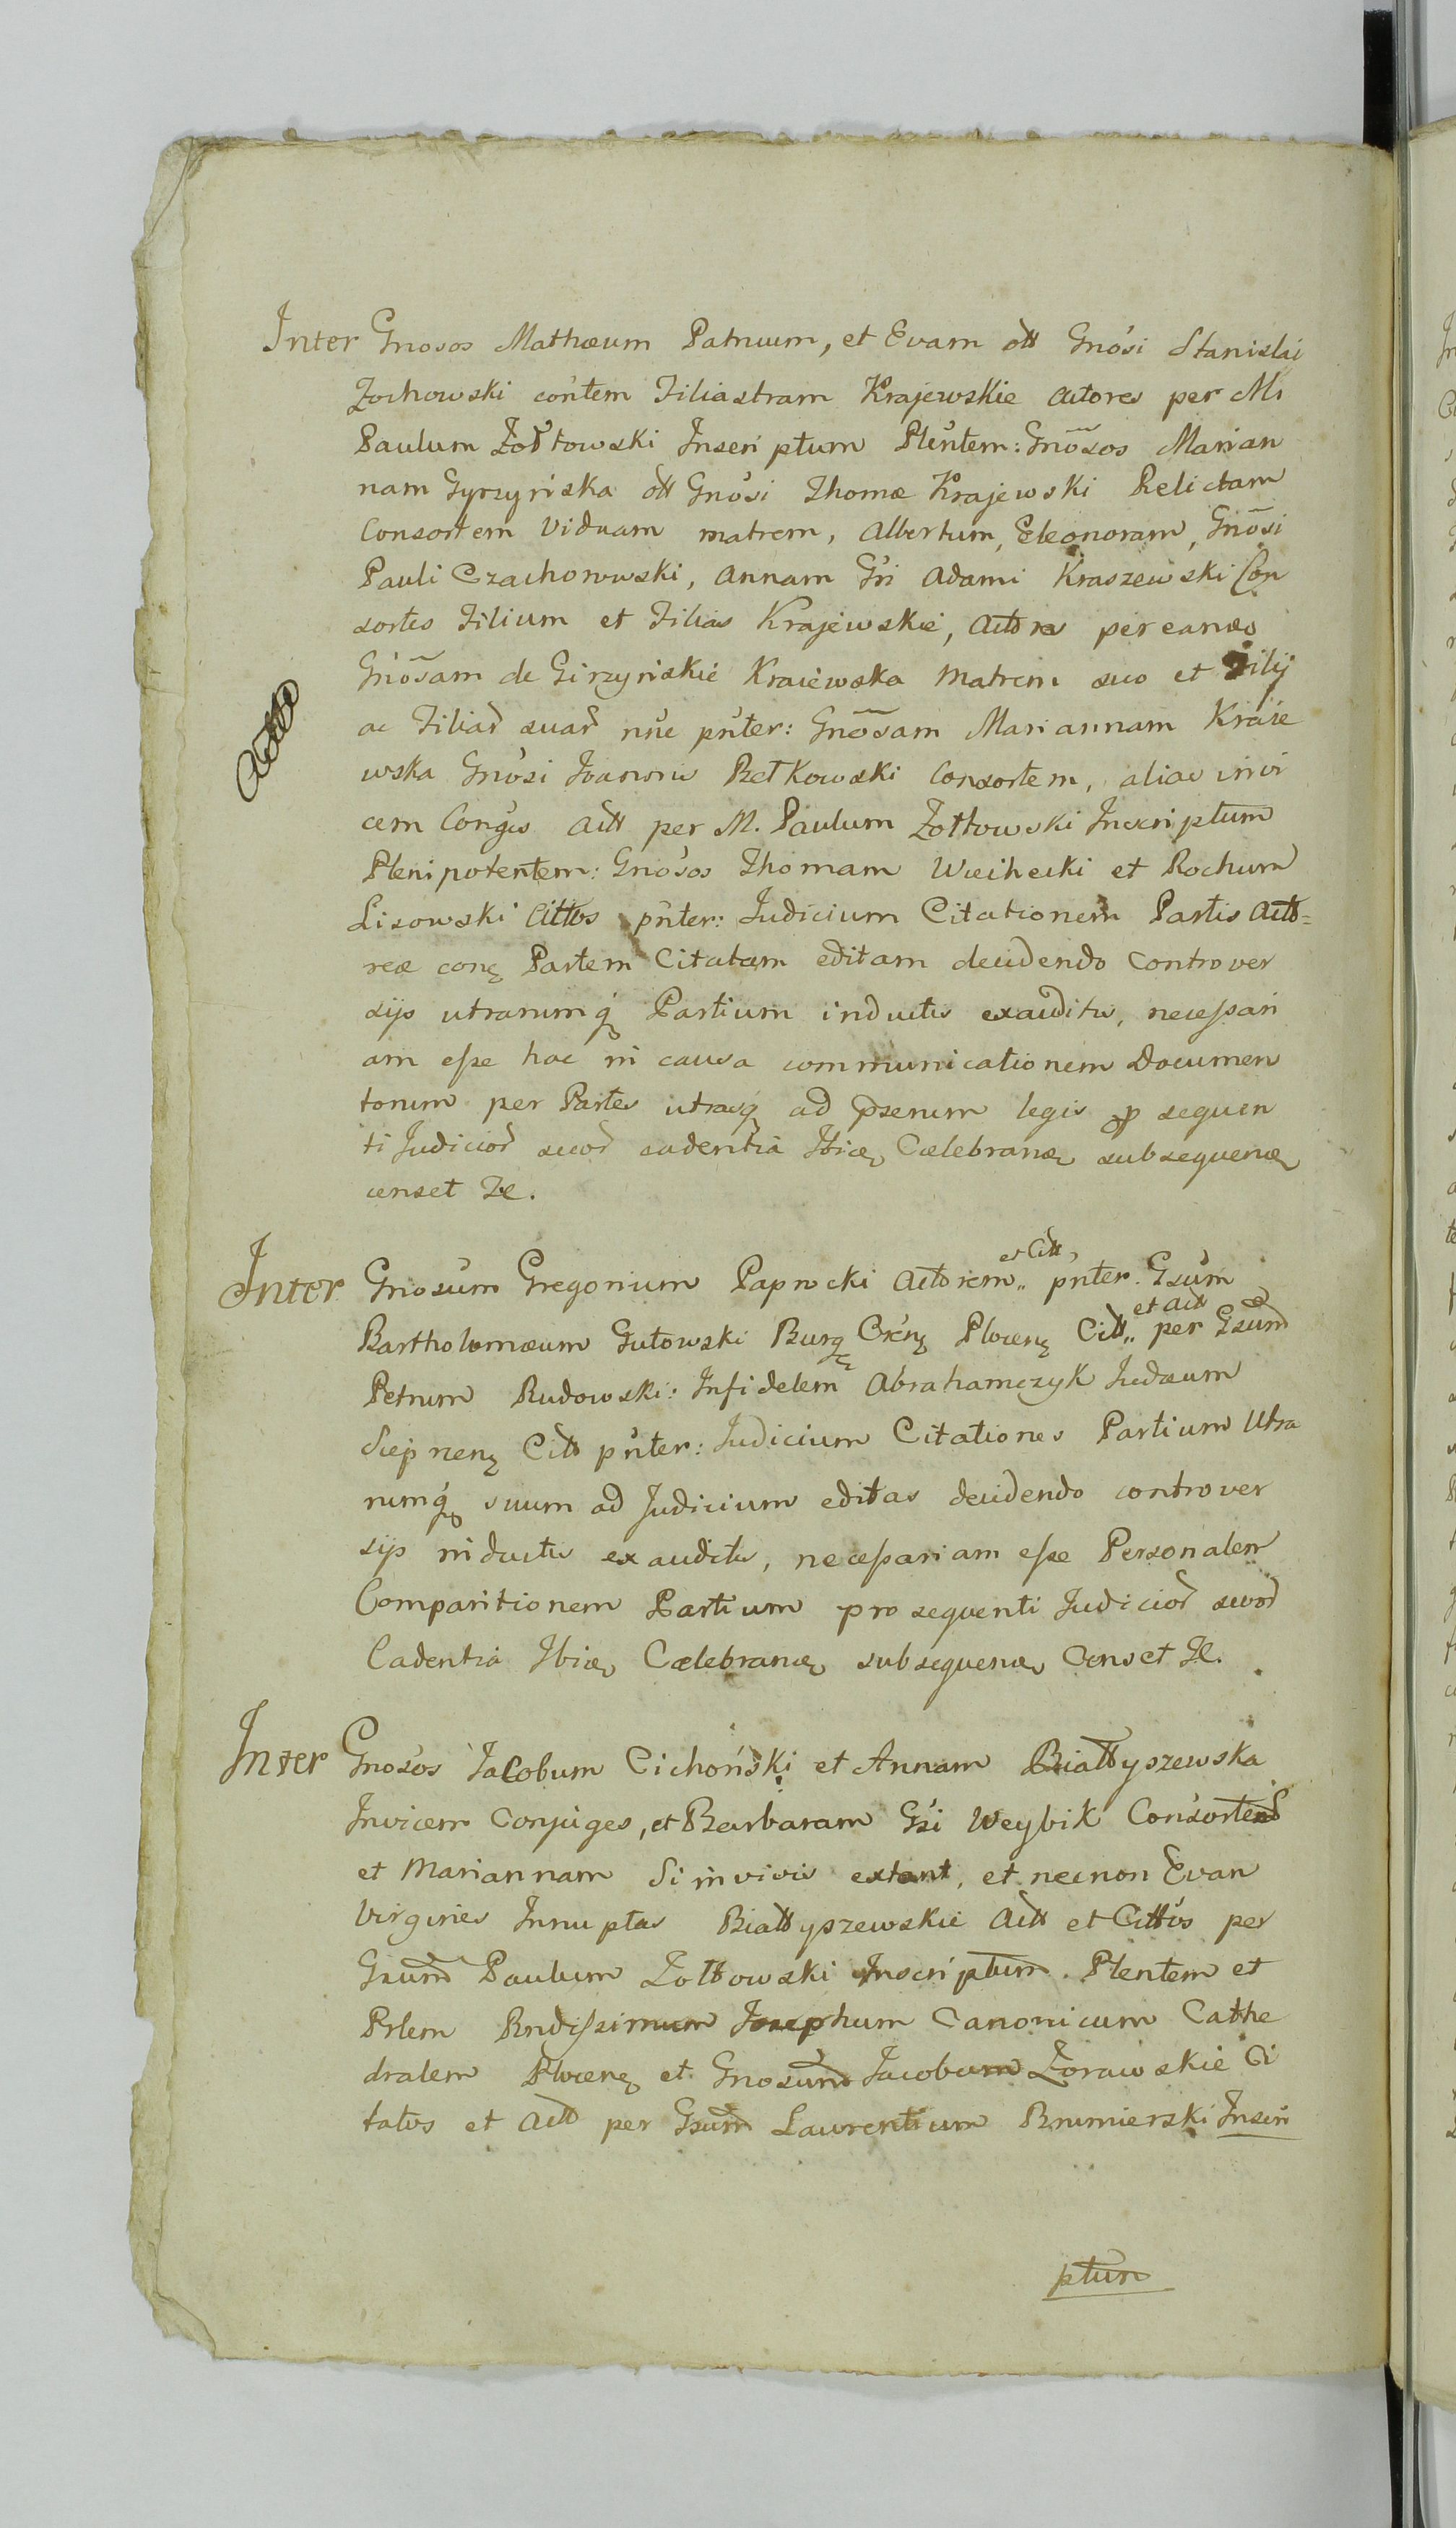 Inter Gnosos Mathæum Patruum, et Evam ott Gnosi Stanislai
Zochowski contem Filiastram Krajewskie Actores per M.
Paulum Zołtowski Inscriptum Plentem: Gnosos Marian
nam Gyrzynska ott Gnosi Thomæ Krajewski Relictam
Consortem Viduam matrem, Albertum, Eleonoram, Gnosi
Pauli Czachorowski, Annam Gsi Adami Kraszewski Con
sortes Filium et Filias Krajewskie, Actores per eandeo
Gnosam de Girzynskie Kraiewska Matrem suo et Filij
ac Filiar suar nne pnter: Gnosam Mariannam Kraie
wska Gnosi Joannis Betkowski Consortem, alias invi
cem Conges Actt per M. Paulum Zołtowski Inscriptum
Plenipotentem: Gnosos Thomam Wiecihecki et Rochum
Lisowski Cittos pnter: Judicium Citationem Partis Acto=
reæ conę Partem Citatam editam decidendo controver
sijs utrarumq Partium inductis exauditis, necessari
am esse hac in causa communicationem Documen
torum per Partes utrasq ad psenum legis pp sequen
ti Judicior suor cadentia Ibiæ Cælebranæ subsequenæ
censet Ze.
Inter Gnosum Gregorium Paprocki Actorem et Citt, pnter. Gsum
Bartholomæum Gutowski Burg Crcnę Plocenę Citt et Actt per Gsum
Petrum Rudowski: Infidelem Abrahamczyk Judæum
Sieprcenę Citt pnter: Judicium Citationes Partium Utra
rumq suum ad Judicium editas decidendo controver
sijs inductis exauditis, necessariam esse Personalem
Comparitionem Partium pro sequenti Judicior suor
Cadentia Ibiæ Cælebranæ subsequenæ Censet Ze.
Inter Gnosos Jacobum Cichoński et Annam Białłyszewska
Invicem Conjuges, et Barbaram Gsi Weybik Consortem
et Mariannam Si in vivis extant, et necnon Evan
Virgines Innuptas Białłyszewskie Actt et Cittos per
Gsum Paulum Zołtowski Inscriptum. Plentem et
Prlem Rndissimum Josephum Canonicum Cathe
dralem Plocenę et Gnosum Jacobum Zorawskie Ci
tatos et Actt per Gsum Laurentium Brumierski Inscri
ptum